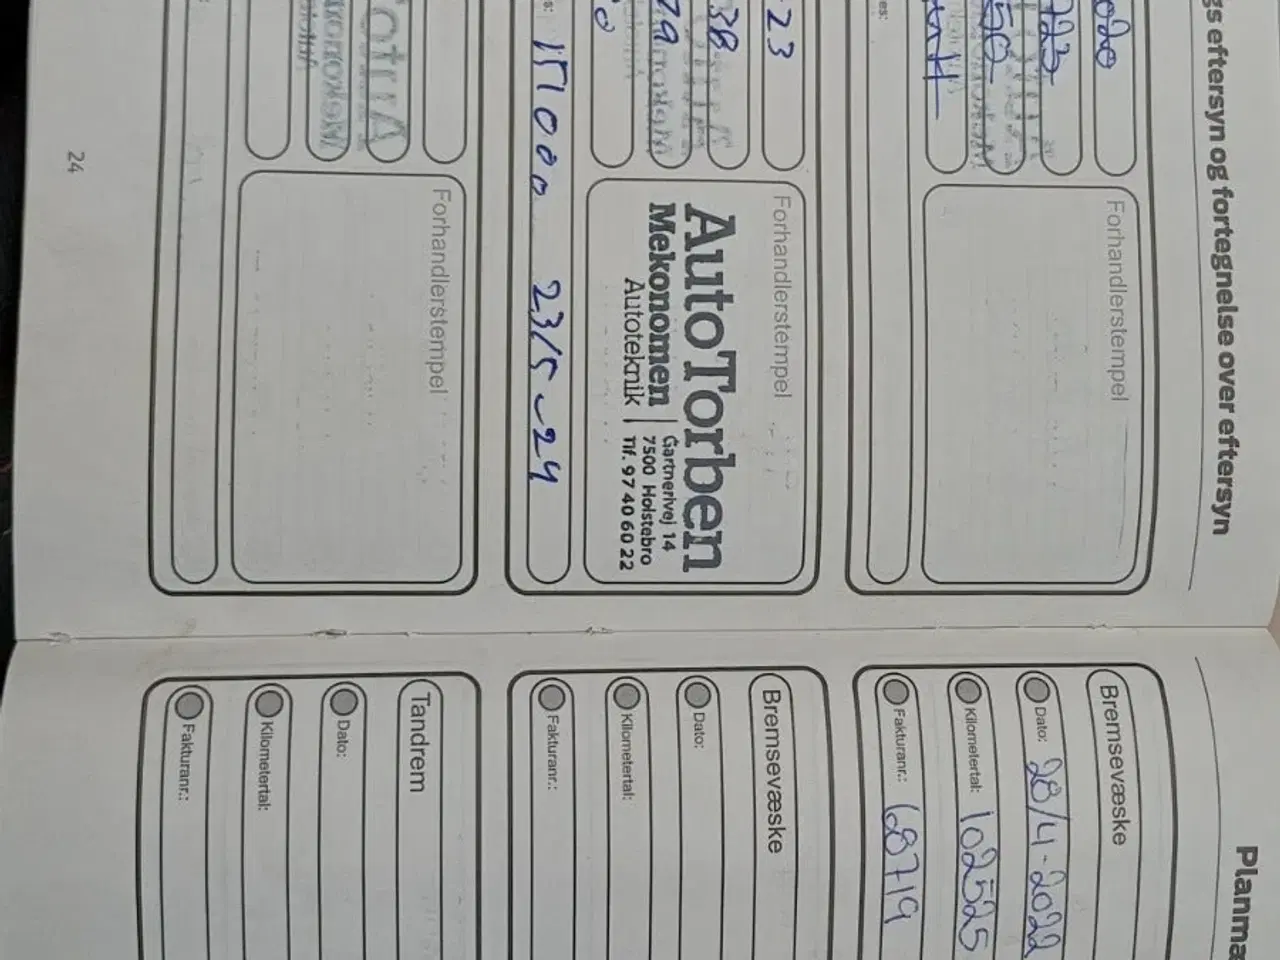 gs eftersyn og fortegnelse over eftersyn
020
723
Forhandlerstempel
es:
23
38
79
Forhandlerstempel
AutoTorben
Mekonomen
Autoteknik
Gartnerivej 14
7500 Holstebro
Tlf. 97 40 60 22
s:
23/5-24
Forhandlerstempel
24
Planma
Bremsevæske
Dato: 28/4-2022
Kilometertal: 102525
Fakturanr.: 68719
Bremsevæske
Dato:
Kilometertal:
Fakturanr.:
Tandrem
Dato:
Kilometertal:
Fakturanr.: